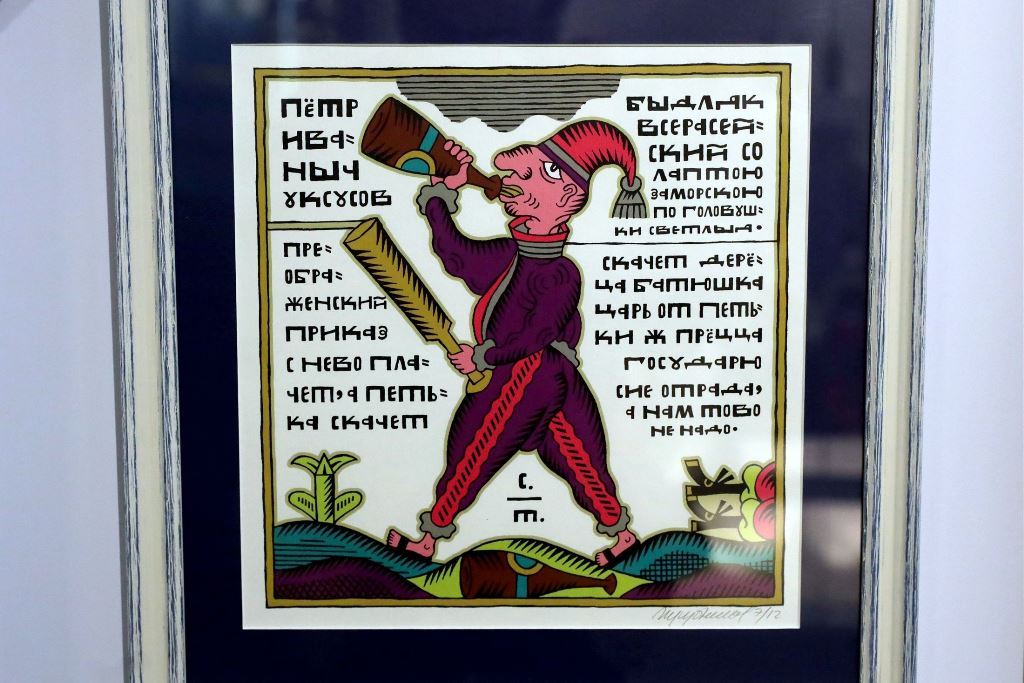 ПЁТР
ИВА=
НЫЧ
УКСУСОВ
БЫДЛЯК
ВСЕРАСЕЙ=
СКИЙ СО
ЛАПТОЮ
ЗАМОРСКОЮ
ПО ГОЛОВУШ=
КИ СВЕТЛЫЯ.
ПРЕ=
ОБРА=
ЖЕНСКИЙ
ПРИКАЗ
С НЕБО ПЛА=
ЧЕТ, А ПЕТЬ=
КА СКАЧЕТ
СКАЧЕТ ДЕРЁ=
ЦА БАТЮШКА
ЦАРЬ ОТ ПЕТЬ=
КИ Ж ПРЁЦЦА
ГОСУДАРЮ
СИЕ ОТРАДА,
А НАМ ТОВО
НЕ НАДО.
С.
Т.
7/12